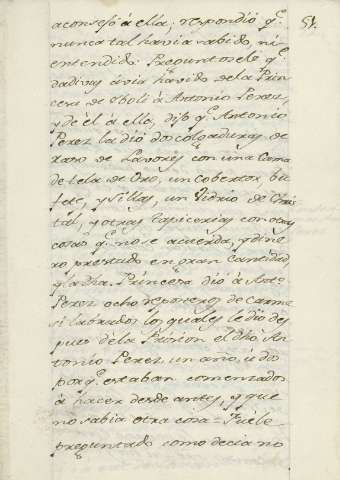 51.
aconsejó á ella; respondió q.e
nunca tal havia sabido, ni
entendido: Preguntosele q.e
dadivas avia havido de la Prin
cesa de Eboli á Antonio Perez,
y de él á ella, dijo q.e Antonio
Perez la dió dos colgaduras de
raso de Lavores con una Cama
de tela de Oro, un cobertor, bu
fete, y sillas, un Vidrio de Chris
tal, y otras tapicerias con otras
cosas q.e no se acuerda, y dine
ro prestado en gran cantidad,
y la dha. Princesa dió á Ant.o
Perez ocho reposteros de carme
si labrados los quales le dio des
pues de la Prision el dho An
tonio Perez un año, ú dos
porq.e estaban comenzados
á hacer desde antes, y que
no sabia otra cosa = Fuele
preguntado como decia no